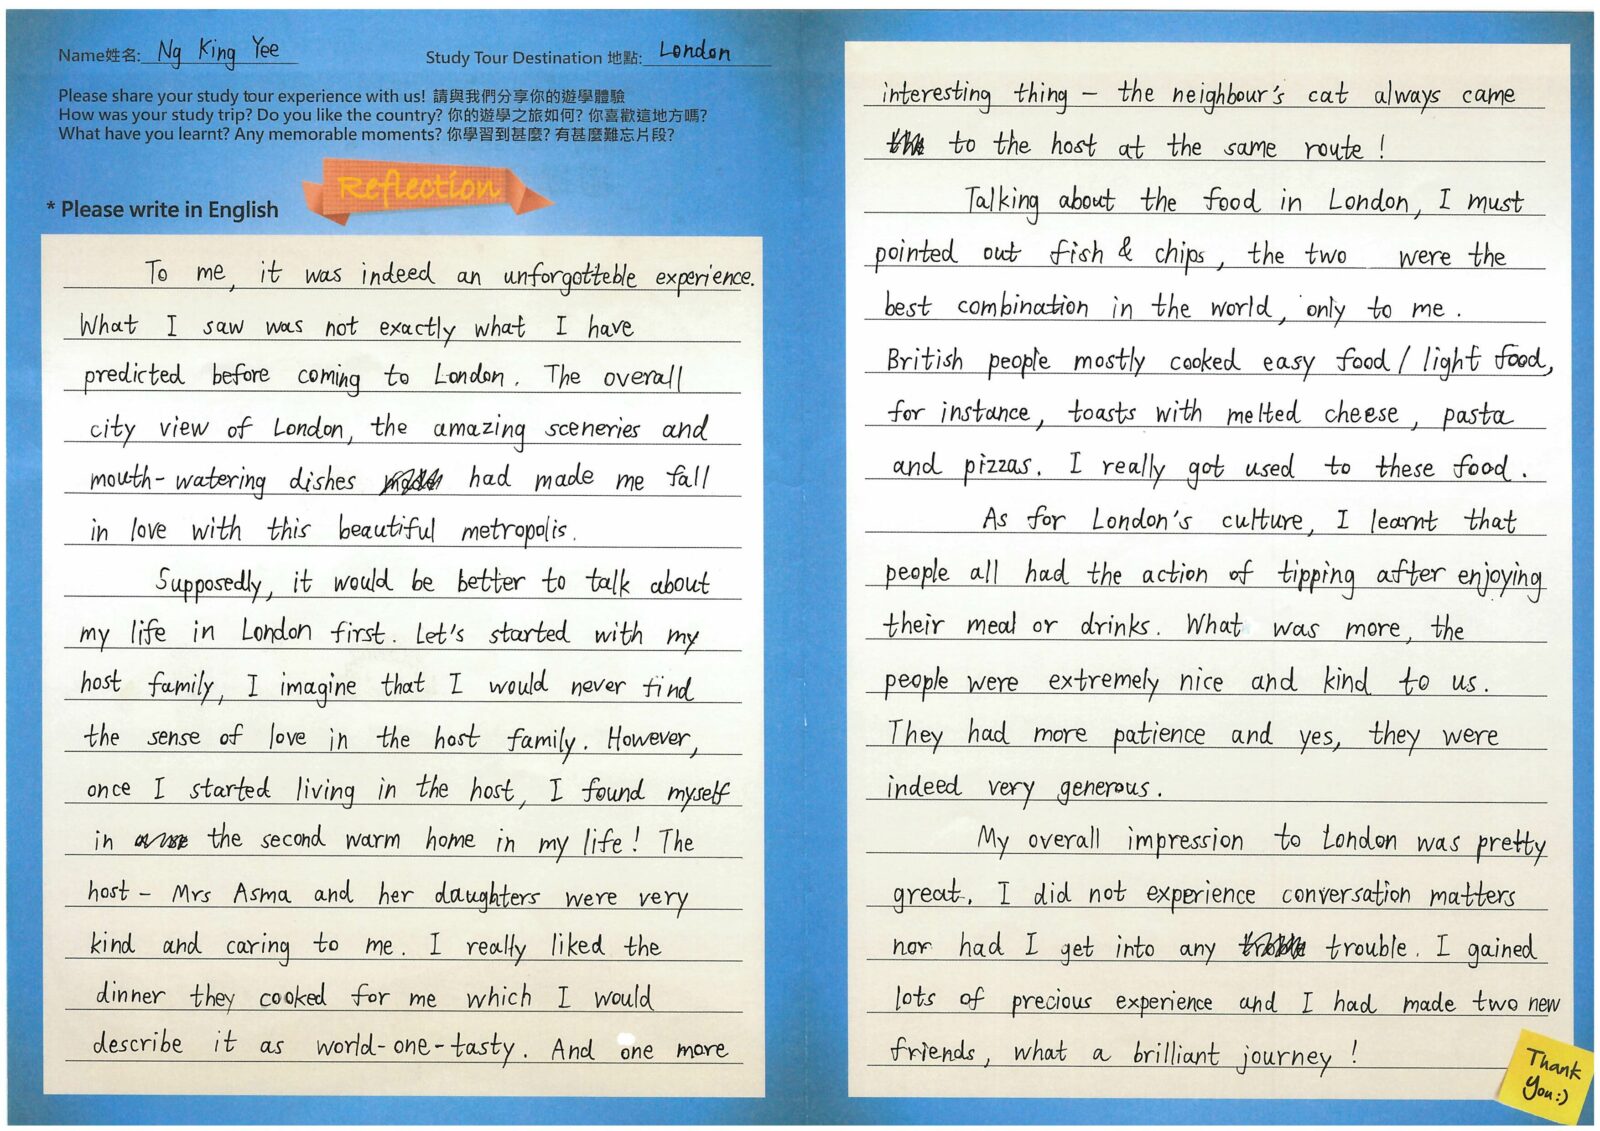 Name姓名: Ng King Yee
Study Tour Destination 地點: London
Please share your study tour experience with us! 請與我們分享你的遊學體驗
How was your study trip? Do you like the country? 你的遊學之旅如何? 你喜歡這地方嗎?
What have you learnt? Any memorable moments? 你學習到甚麼? 有甚麼難忘片段?
Reflection
* Please write in English
To me, it was indeed an unforgotteble experience.
What I saw was not exactly what I have
predicted before coming to London. The overall
city view of London, the amazing sceneries and
mouth-watering dishes had made me fall
in love with this beautiful metropolis.
Supposedly, it would be better to talk about
my life in London first. Let's started with my
host family, I imagine that I would never find
the sense of love in the host family. However,
once I started living in the host, I found myself
in the second warm home in my life! The
host - Mrs Asma and her daughters were very
kind and caring to me. I really liked the
dinner they cooked for me which I would
describe it as world-one-tasty. And one more
interesting thing - the neighbour's cat always came
to the host at the same route!
Talking about the food in London, I must
pointed out fish & chips, the two were the
best combination in the world, only to me.
British people mostly cooked easy food / light food,
for instance, toasts with melted cheese, pasta
and pizzas. I really got used to these food.
As for London's culture, I learnt that
people all had the action of tipping after enjoying
their meal or drinks. What was more, the
people were extremely nice and kind to us.
They had more patience and yes, they were
indeed very generous.
My overall impression to London was pretty
great. I did not experience conversation matters
nor had I get into any trouble. I gained
lots of precious experience and I had made two new
friends, what a brilliant journey!
Thank
You:)